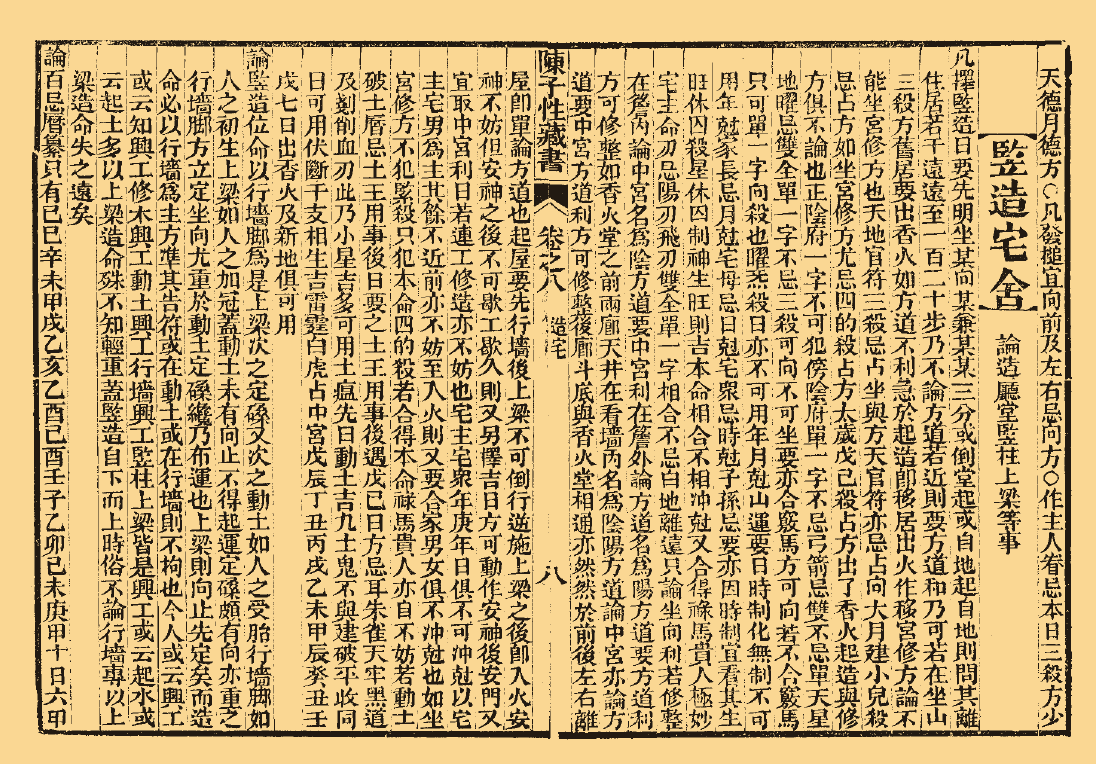 天德月德方○凡發槌宜向前及左右忌向方○作主人眷忌本日三殺方少
【監造宅舍】 論造廳堂監柱上梁等事
凡擇監造日要先明坐某向某兼某某三分或倒堂起或自地起自地則問其離
住居若干遠遠至一百二十步乃不論方道若近則要方道和乃可若在坐山
三殺方舊居要出香火如方道不利急於起造即移居出火作移宮修方論不
能坐宮修方也天地官符三殺忌占坐與方天官符亦忌占向大月建小兒殺
忌占方如坐宮修方尤忌四的殺占方太歲戊己殺占方出了香火起造與修
方俱不論也正陰府一字不可犯傍陰府單一字不忌弓箭忌雙不忌單天星
地曜忌雙全單一字不忌三殺可向不可坐要亦合竅馬方可向若不合竅馬
只可單一字向殺也曜殺日亦不可用年月尅山運要日時制化無制不可
用年尅家長忌月尅宅母忌日尅宅眾忌時尅子孫忌要亦因時制宜看其生
旺休囚殺星休囚制神生旺則吉本命相合不相冲尅又合得祿馬貴人極妙
宅主命刃忌陽刃飛刃雙全單一字相合不忌白地離遠只論坐向利若修整
在簷內論中宮名為陰方道要中宮利在簷外論方道名為陽方道要方道利
方可修整如香火堂之前兩廊天井在看墻內名為陰陽方道論中宮亦論方
道要中宮方道利方可修整後廊斗底與香火堂相通亦然然於前後左右離
陳子性藏書 卷之八 造宅 八
屋即單論方道也起屋要先行墻後上梁不可倒行逆施上梁之後即入火安
神不妨但安神之後不可歇工歇久則又另擇吉日方可動作安神後安門又
宜取中宮利日若連工修造亦不妨也宅主宅眾年庚年日俱不可冲尅以宅
主宅男為主其餘不近前亦不妨至入火則又要合家男女俱不冲尅也如坐
宮修方不犯監殺只犯本命四的殺若合得本命祿馬貴人亦自不妨若動土
破土曆忌土王用事後日要之土王用事後遇戊己日方忌耳朱雀天牢黑道
及剗削血刃此乃小星吉多可用土瘟先日動土吉九土鬼不與建破平收同
日可用伏斷干支相生吉雷霆白虎占中宮戊辰丁丑丙戌乙未甲辰癸丑壬
戌七日出香火及新地俱可用
論監造位命以行墻脚為是上梁次之定磉又次之動土如人之受胎行墻脚如
人之初生上梁如人之加冠蓋動土未有向止不得起運定磉頗有向亦重之
行墻脚方立定坐向尤重於動土定磉纔乃布運也上梁則向止先定矣而造
命必以行墻為主方準其告符或在動土或在行墻則不拘也今人或云興工
或云知興工修木興工動土興工行墻興工監柱上梁皆是興工或云起水或
云起土多以上梁造命殊不知輕重蓋監造自下而上時俗不論行墻專以上
梁造命失之遠矣
論百忌曆纂只有己巳辛未甲戌乙亥乙酉己酉壬子乙卯己未庚申十日六甲